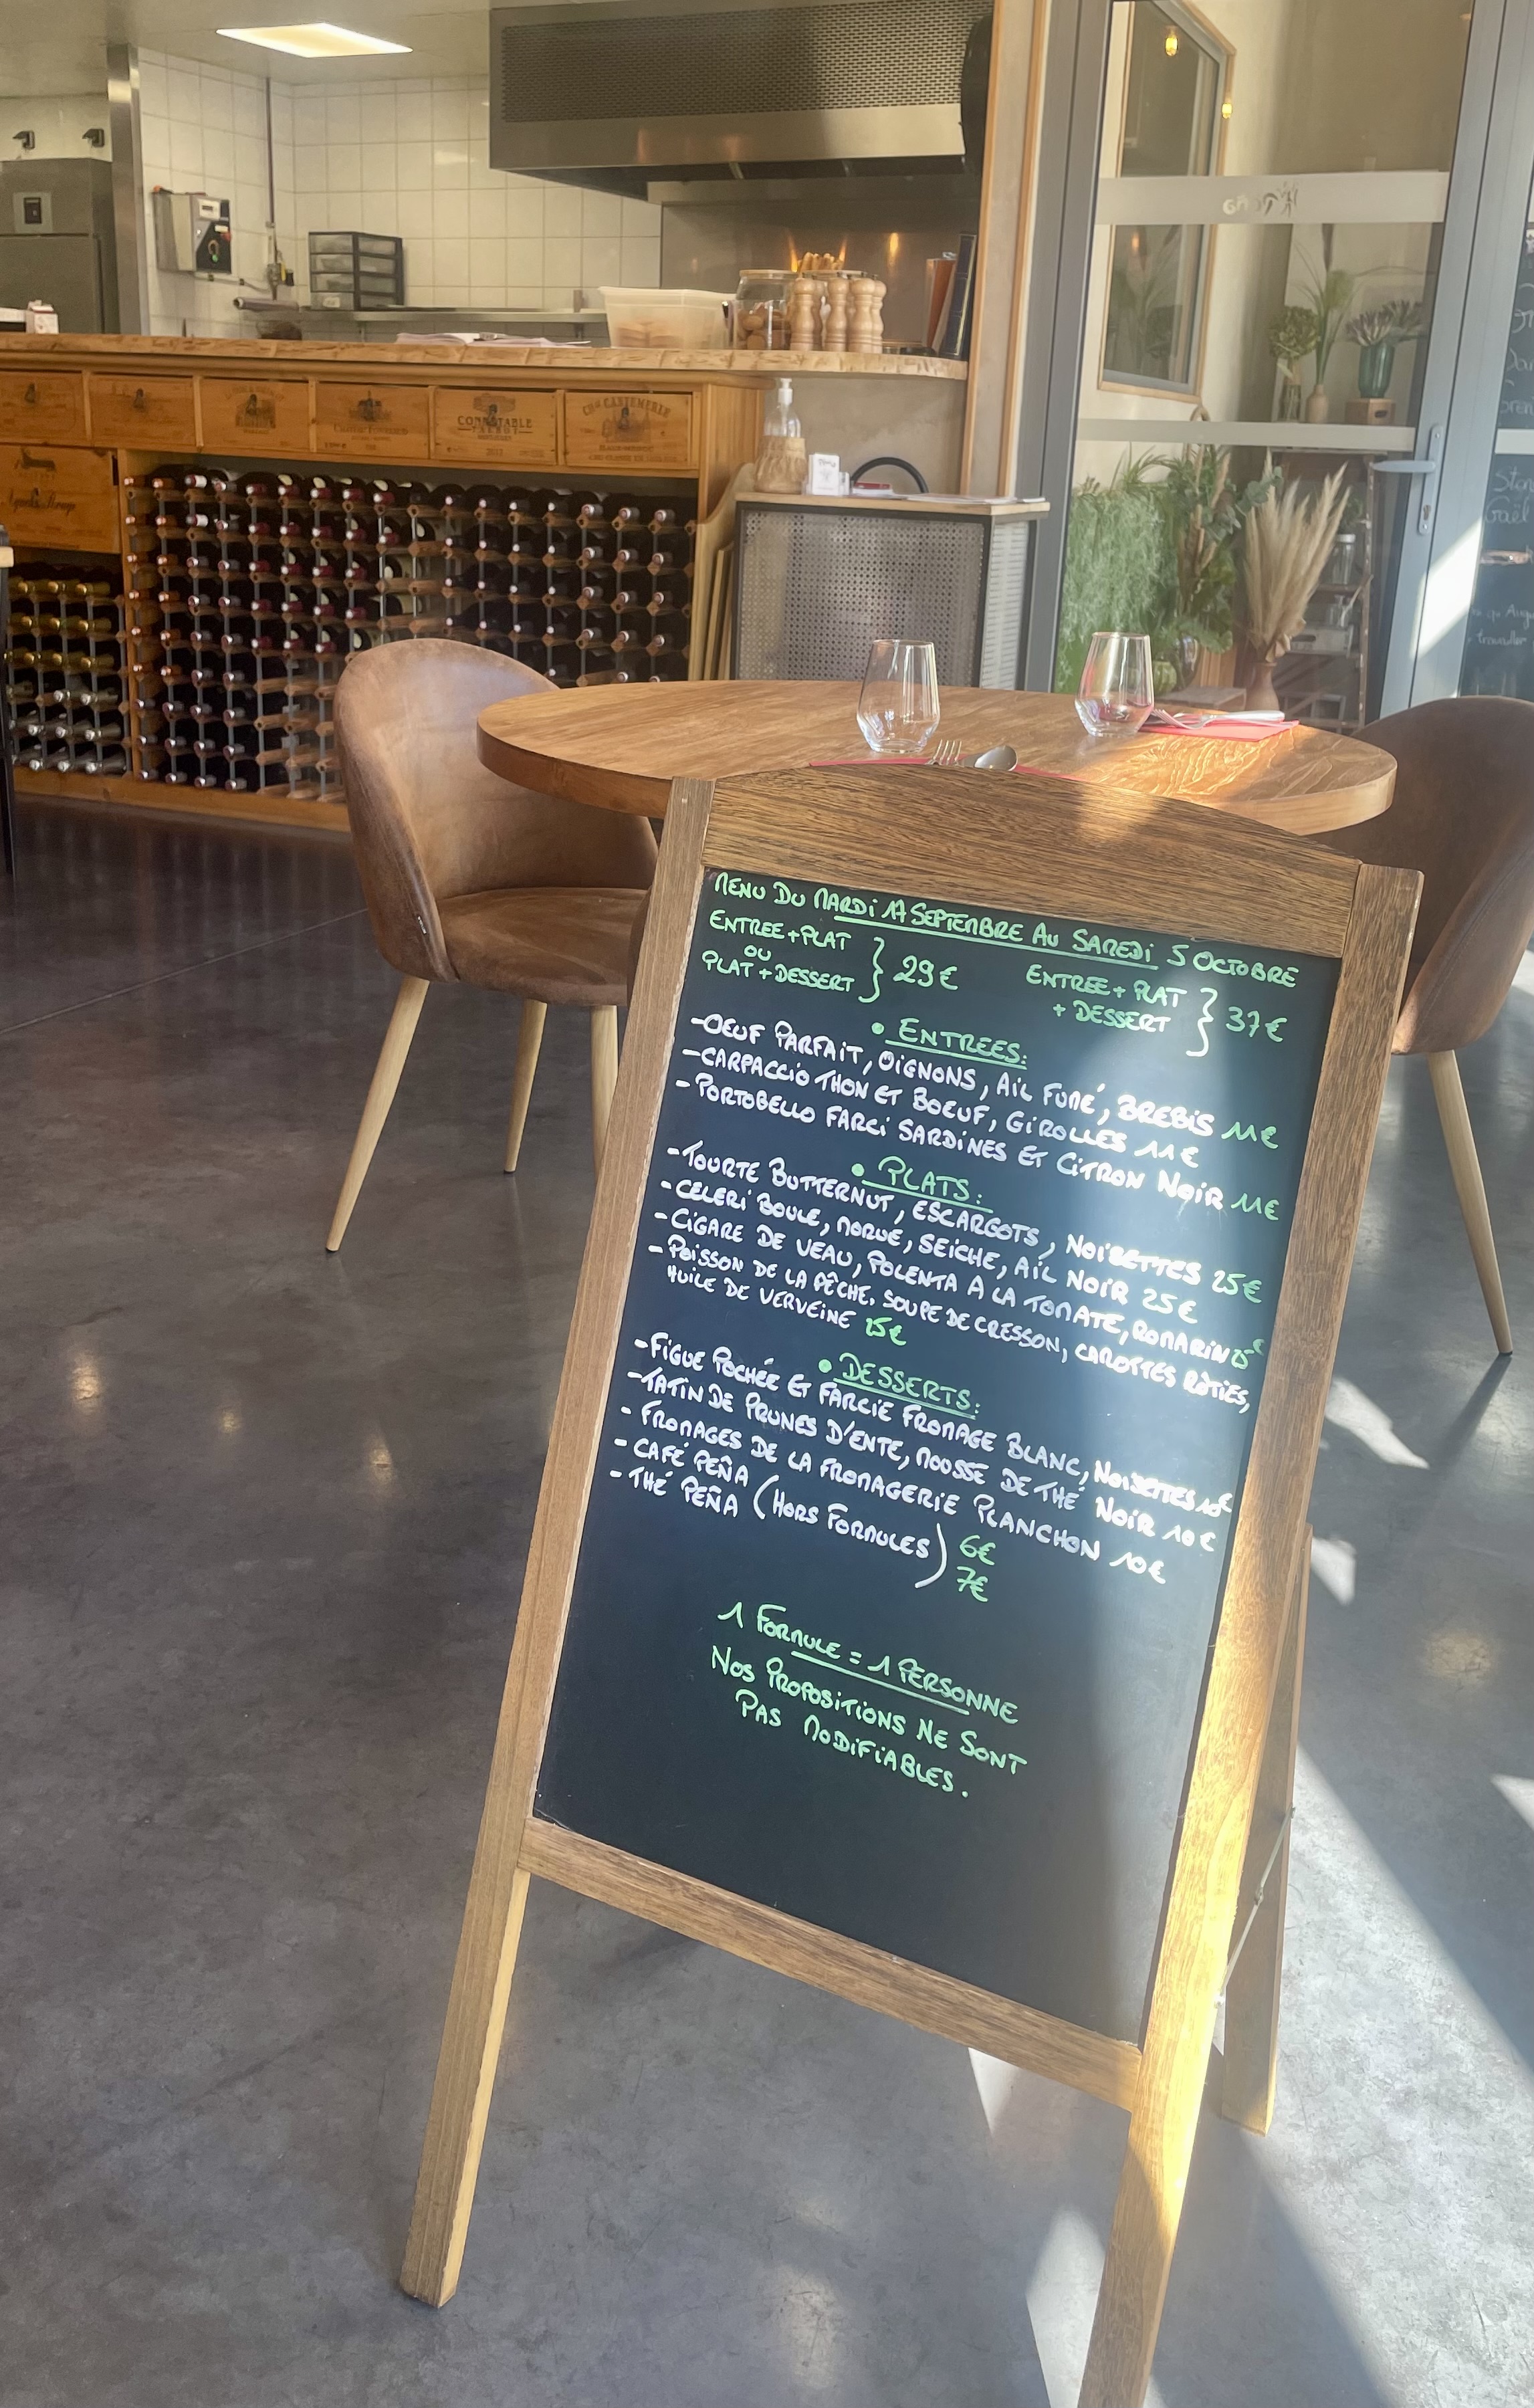 MENU DU MARDI 17 SEPTEMBRE AU SAMEDI 5 OCTOBRE
ENTREE + PLAT
OU
PLAT + DESSERT
} 29€
ENTREE + PLAT
+ DESSERT
} 37€
• ENTREES:
- OEUF PARFAIT, OIGNONS, AIL FUMÉ, BREBIS 11€
- CARPACCIO THON ET BOEUF, GIROLLES 11€
- PORTOBELLO FARCI SARDINES ET CITRON NOIR 11€
• PLATS:
- TOURTE BUTTERNUT, ESCARGOTS, NOISETTES 25€
- CELERI BOULE, MORUE, SEICHE, AIL NOIR 25€
- CIGARE DE VEAU, POLENTA A LA TOMATE, ROMARIN 25€
- POISSON DE LA PÊCHE, SOUPE DE CRESSON, CAROTTES RÔTIES,
HUILE DE VERVEINE 25€
• DESSERTS:
- FIGUE POCHÉE ET FARCIE FROMAGE BLANC, NOISETTES 10€
- TATIN DE PRUNES D'ENTE, MOUSSE DE THÉ NOIR 10€
- FROMAGES DE LA FROMAGERIE PLANCHON 10€
- CAFÉ PEÑA
- THÉ PEÑA (HORS FORMULES)
6€
7€
1 FORMULE = 1 PERSONNE
NOS PROPOSITIONS NE SONT
PAS MODIFIABLES.
CONNETABLE
TALBOT
CH. CANTEMERLE